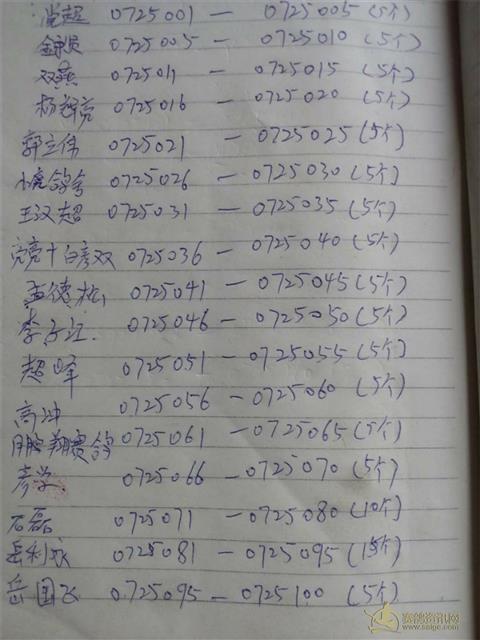 超 0725001 — 0725005 (5个)
0725005 — 0725010 (5个)
双燕 0725011 — 0725015 (5个)
杨 亮 0725016 — 0725020 (5个)
郭立伟 0725021 — 0725025 (5个)
小虎鸽舍 0725026 — 0725030 (5个)
王汉超 0725031 — 0725035 (5个)
亮亮十白彦双 0725036 — 0725040 (5个)
孟德松 0725041 — 0725045 (5个)
李子江. 0725046 — 0725050 (5个)
超峰 0725051 — 0725055 (5个)
高冲 0725056 — 0725060 (5个)
翔赛鸽 0725061 — 0725065 (5个)
彦学 0725066 — 0725070 (5个)
石磊 0725071 — 0725080 (10个)
岳利 0725081 — 0725095 (15个)
岳国飞 0725095 — 0725100 (5个)
赛鸽资讯网
www.saige.com